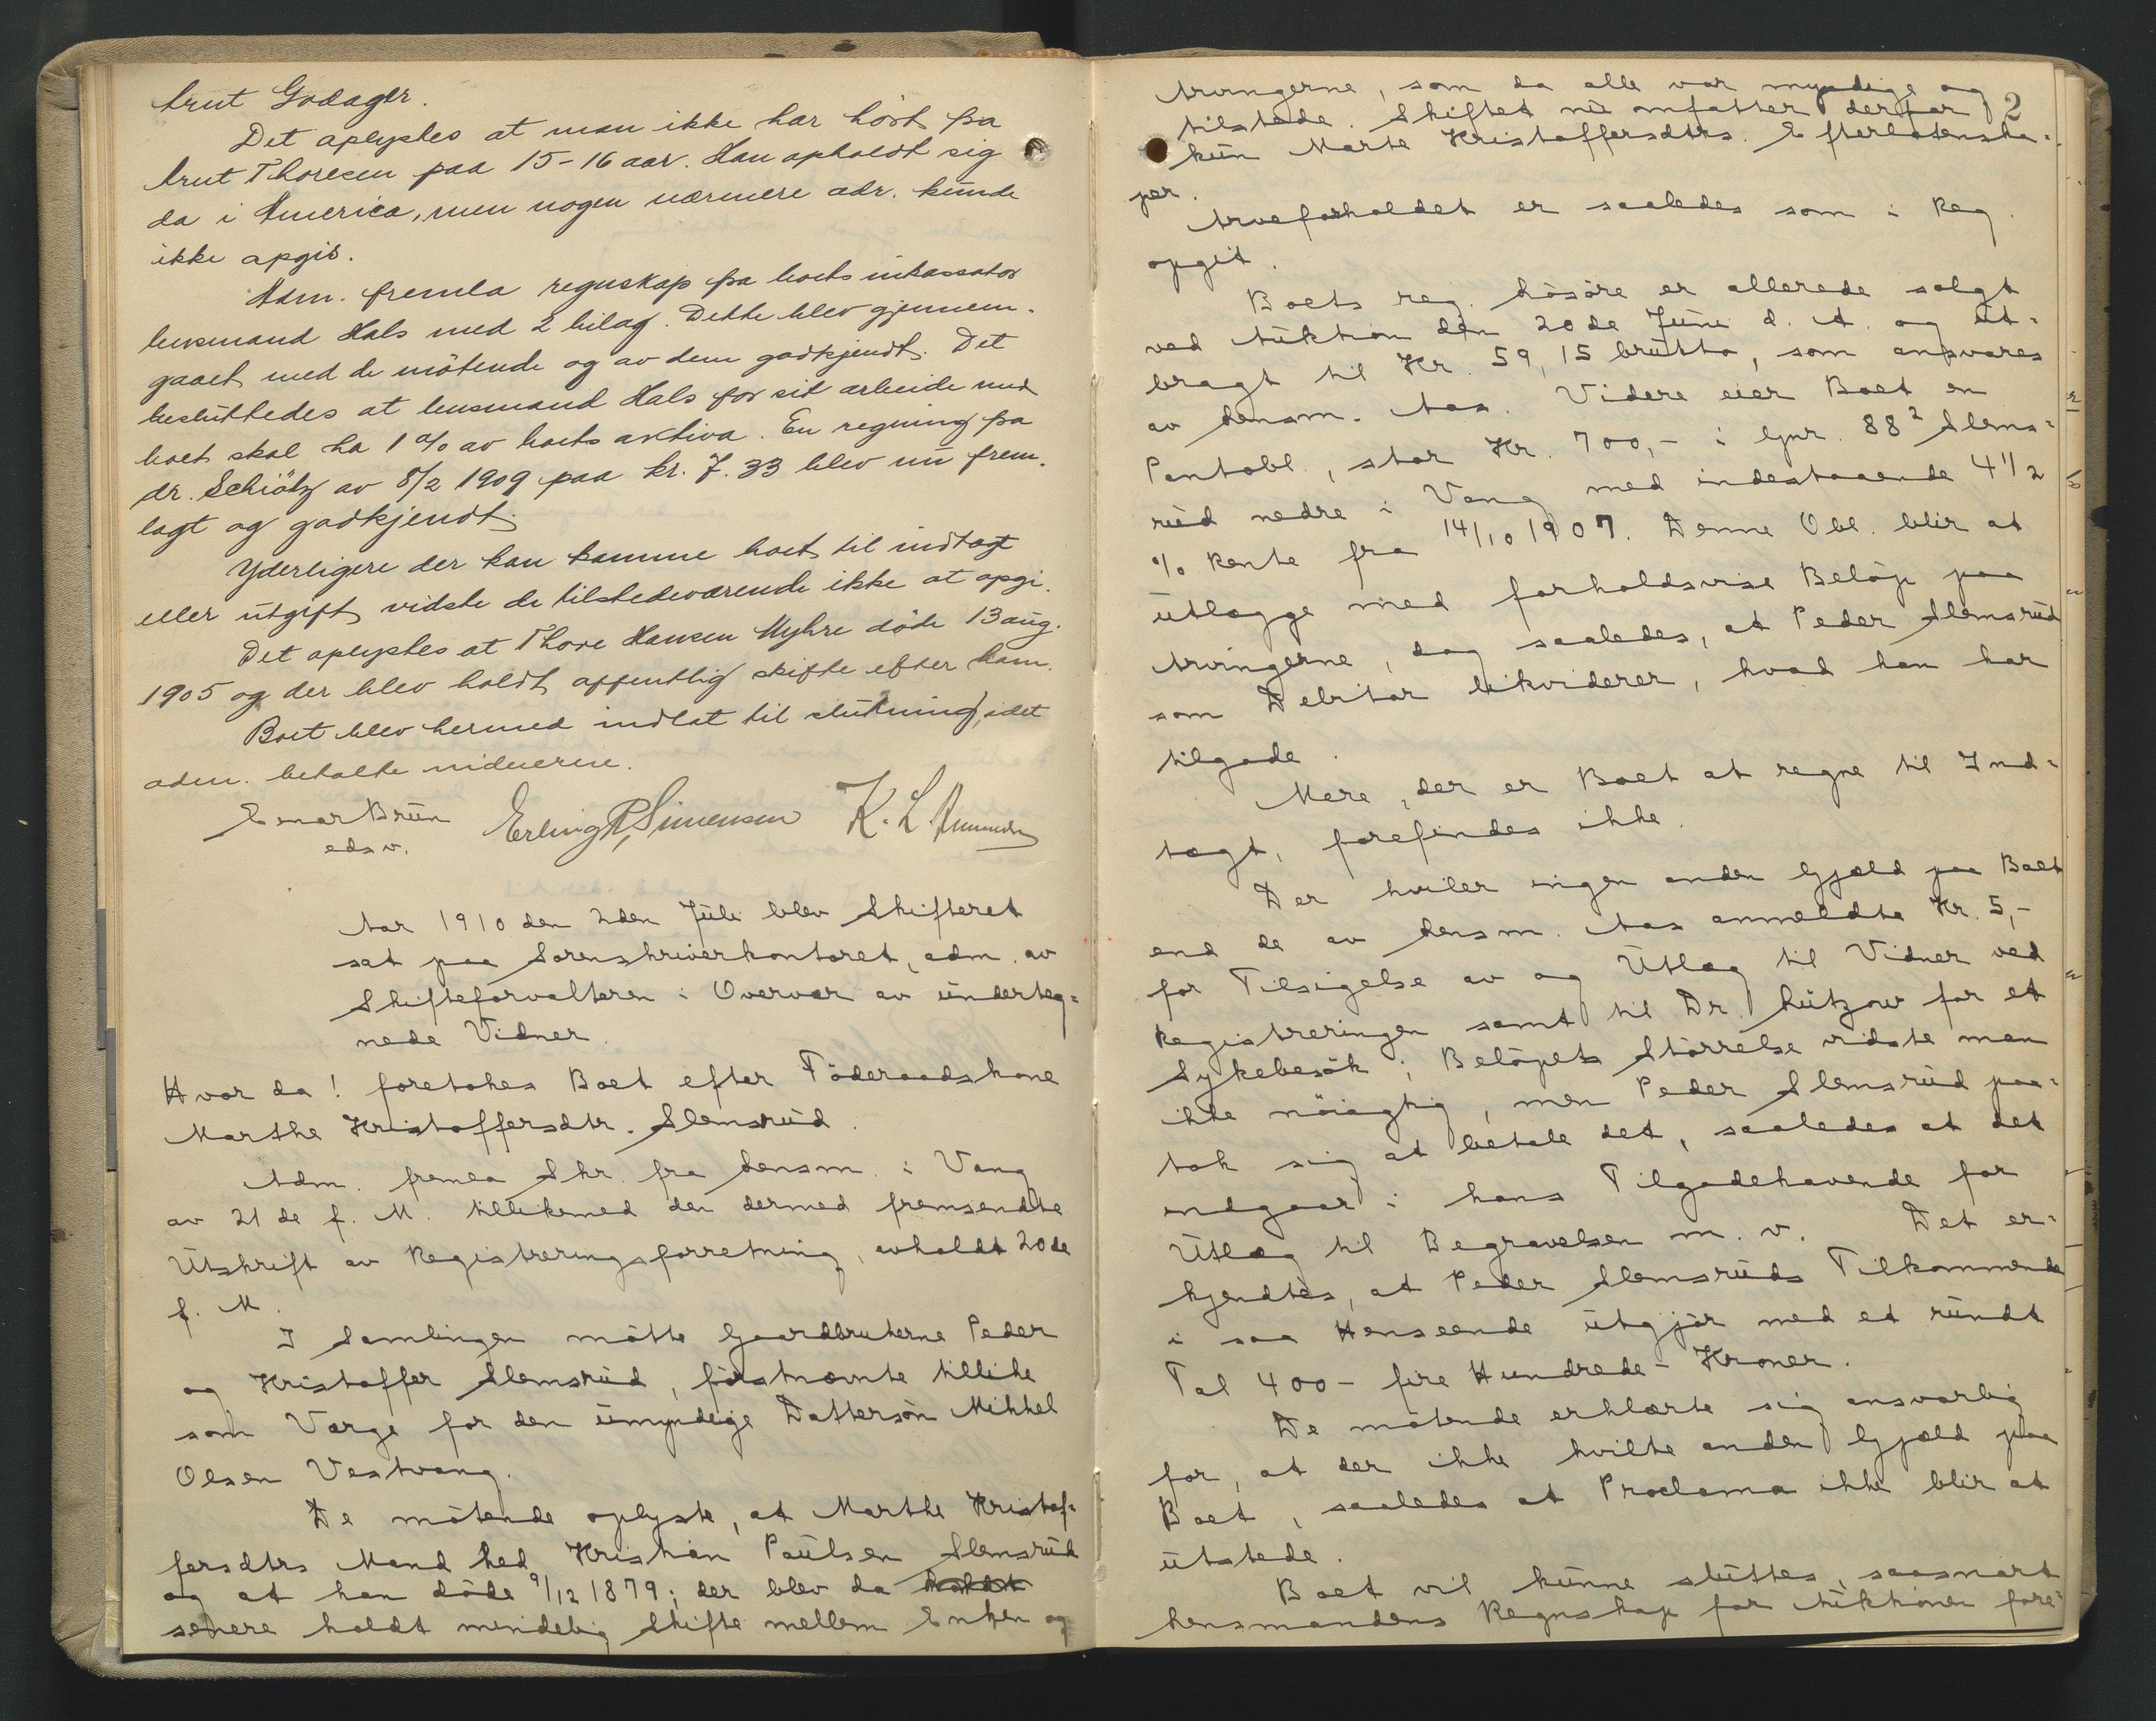 Arnt Godager.
Det oplystes at man ikke har hørt fra
Arnt Thoresen paa 15-16 aar. Han opholdt sig
da i America, men nogen nærmere adr. kunde
ikke opgis.
Adm. fremla regnskap fra boets inkassator
lensmand Hals med 2 bilag. Dette blev gjennem-
gaaet med de møtende og av dem godkjendt. Det
besluttedes at lensmand Hals for sit arbeide med
boet skal ha 1 % av boets aktiva. En regning fra
dr. Schiøtz av 8/2 1909 paa kr. 7.33 blev nu frem-
lagt og godkjendt.
Yderligere der kan komme boet til indtægt
eller utgift vidste de tilstedeværende ikke at opgi.
Det oplystes at Thore Hansen Myhre døde 13 aug.
1905 og der blev holdt offentlig skifte efter ham.
Boet blev hermed indlat til slutning, idet
adm. betalte vidnerne.
Einar Bruun Erling R. Simensen K. L.
edsv.
Aar 1910 den 2den Juli blev Skifteret
sat paa Sorenskriverkontoret, adm. av
Skifteforvalteren i Overvær av underteg=
nede Vidner.
Hvor da! foretokes Boet efter Føderaadskone
Marthe Kristoffersdtr. Slemsrud.
Adm. fremla Skr. fra Lensm. i Vang
av 21de f. M. tillikemed den dermed fremsendte
Utskrift av Registreringsforretning, avholdt 20de
f. M.
I Samlingen møtte Gaardbrukerne Peder
og Kristoffer Slemsrud, førstnævnte tillike
som Værge for den umyndige Dattersøn Mikkel
Olsen Vestvang.
De møtende oplyste, at Marthe Kristof=
fersdtrs Mand hed Kristian Paulsen Slemsrud
og at han døde 9/12 1879; der blev da holdt
senere holdt mindelig Skifte mellem Enken og
2
Arvingerne, som da alle var myndige og
tilstede. Skiftet nu omfatter derfor
kun Marte Kristoffersdtrs. Efterlatenska=
per.
Arveforholdet er saaledes som i Reg.
opgit.
Boets reg. Løsøre er allerede solgt
ved Auktion den 20de Juni d. A. og ut=
bragt til Kr. 59,15 brutto, som ansvares
av Lensm. Aas. Videre eier Boet en
Pantobl., stor Kr. 700,- i Gnr. 88² Slems=
rud nedre i Vang med indestaaende 4 1/2
% Rente fra 14/10 1907. Denne Obl. blir at
utlægge med forholdsvise Beløp paa
Arvingerne, dog saaledes, at Peder Slemsrud
som Debitor likviderer, hvad han har
tilgode.
Mere, der er Boet at regne til Ind=
tægt, forefindes ikke.
Der hviler ingen anden Gjæld paa Boet
end de av Lensm. Aas anmeldte Kr. 5,-
for Tilsigelse av og Utlæg til Vidner ved
Registreringen samt til Dr. Lützow for et
Sykebesøk; Beløpets Størrelse vidste man
ikke nøiagtig, men Peder Slemsrud paa=
tok sig at betale det, saaledes at det
indgaar i hans Tilgodehavende for
Utlæg til Begravelsen m. v. Det er=
kjendtes, at Peder Slemsruds Tilkommende
i saa Henseende utgjør med et rundt
Tal 400 - fire Hundrede - Kroner.
De møtende erklærte sig ansvarlig
for, at der ikke hvilte anden Gjæld paa
Boet, saaledes at Proclama ikke blir at
utstede.
Boet vil kunne sluttes, saasnart
Lensmandens Regnskap for Auktionen fore=